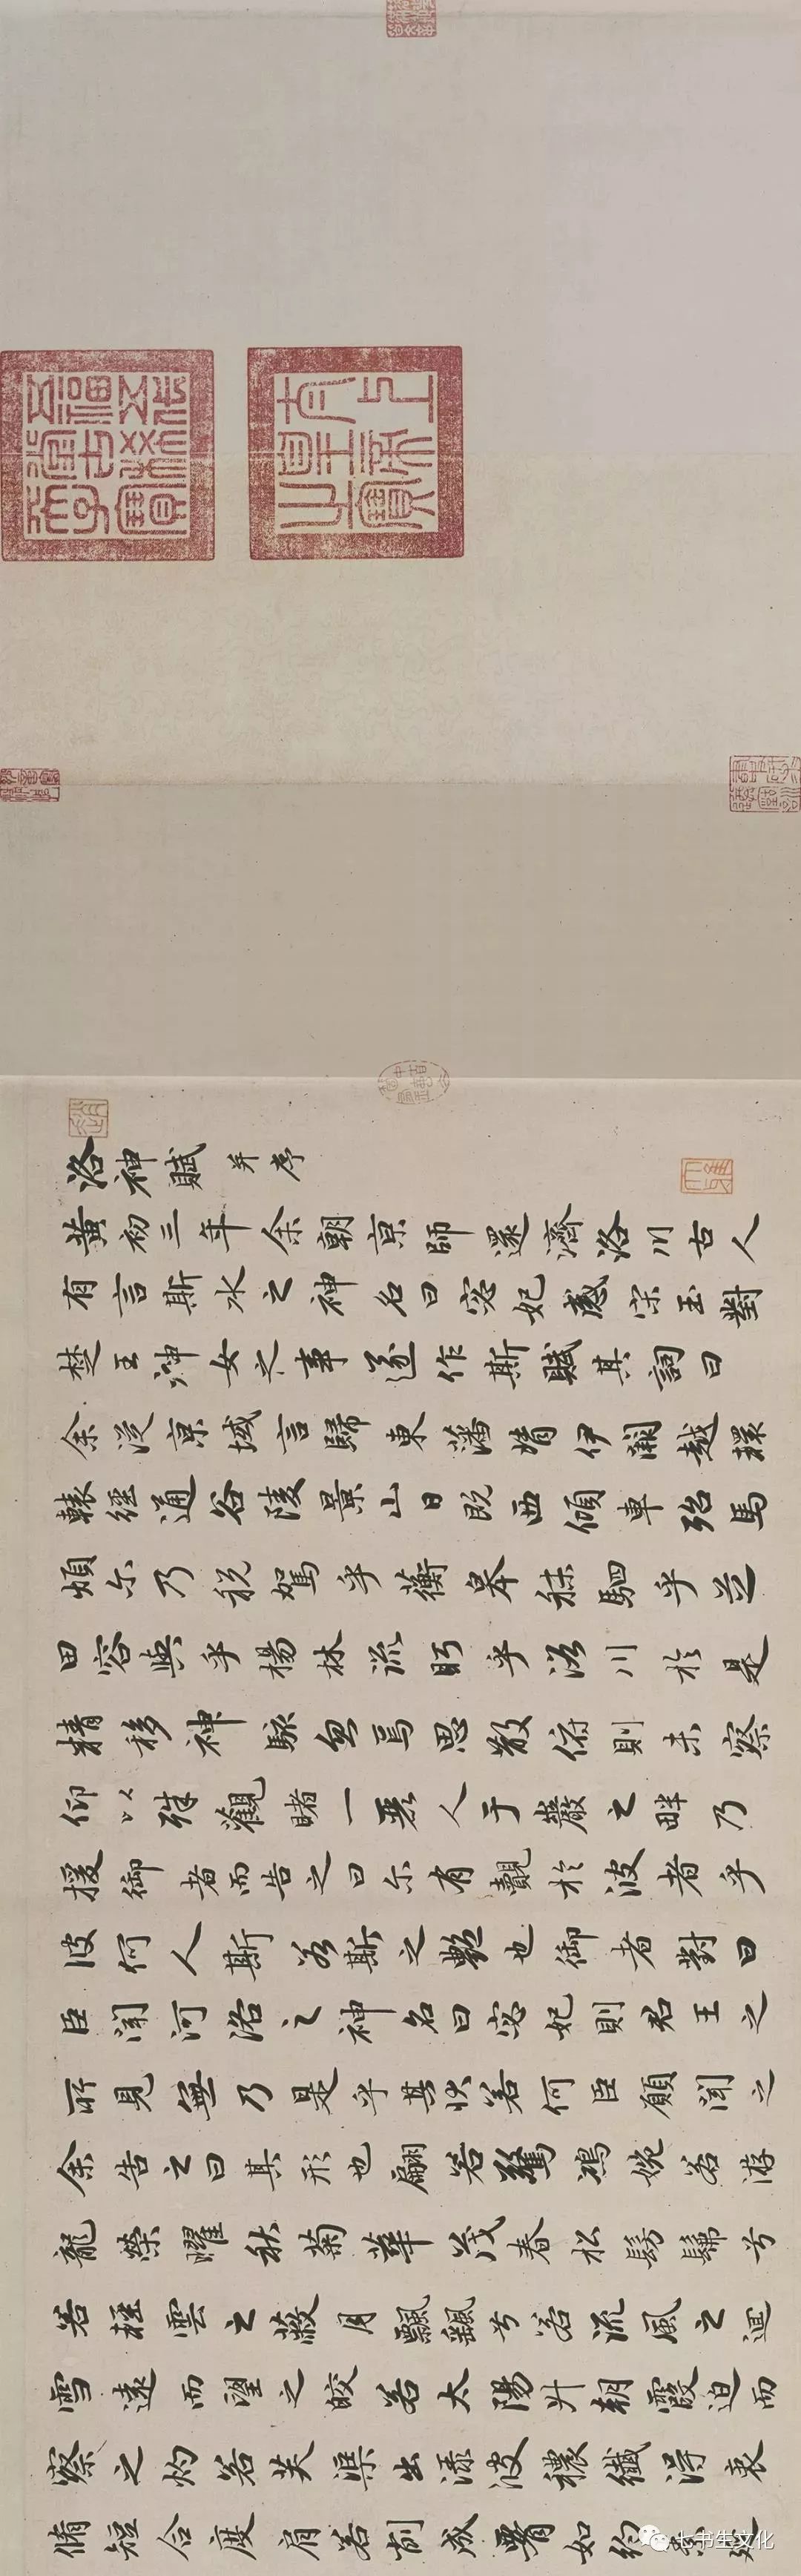 五福五代堂古稀天子寶
太上皇帝之寶
洛神賦 并序
黃初三年余朝京師還濟洛川古人
有言斯水之神名曰宓妃感宋玉對
楚王神女之事遂作斯賦其詞曰
余從京域言歸東藩背伊闕越轘
轅經通谷陵景山日既西傾車殆馬
煩尒乃稅駕乎蘅皋秣駟乎芝
田容與乎楊林流眄乎洛川於是
精移神駭忽焉思散俯則未察
仰以殊觀睹一麗人于巖之畔乃
援御者而告之曰尒有覿於彼者乎
彼何人斯若斯之艷也御者對曰
臣聞河洛之神名曰宓妃則君王之
所見無乃是乎其狀若何臣願聞之
余告之曰其形也翩若驚鴻婉若游
龍榮耀秋菊華茂春松髣髴兮
若輕雲之蔽月飄颻兮若流風之迴
雪遠而望之皎若太陽升朝霞迫而
察之灼若芙渠出淥波穠纖得衷
脩短合度肩若削成腰如約素延
七书生文化